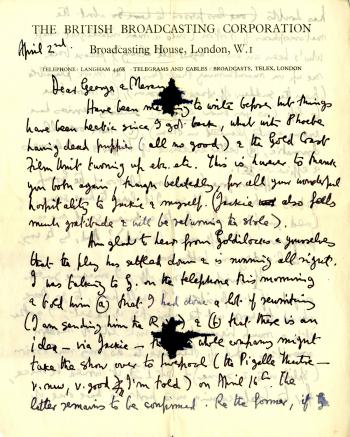 THE BRITISH BROADCASTING CORPORATION
April 2nd.
Broadcasting House, London, W.1
TELEPHONE: LANGHAM 4468 TELEGRAMS AND CABLES: BROADCASTS, TELEX, LONDON
Dear George &
Have been to write before but things
have been hectic since I got back, what with Phoebe
having dead puppies (all no good) & the Gold Coast
Film Unit turning up etc. etc. This is however to thank
you both again, though belatedly, for all your wonderful
hospitality to Jackie & myself. (Jackie also feels
much gratitude & will be returning the stole).
Am glad to hear from Goldilocks & yourselves
that the play has settled down & is running all right.
I was talking to G. on the telephone this morning
& told him (a) that I had done a lot of rewriting
(I am sending him the & (b) that there is an
idea – via Jackie – whole company might
take the show over to Liverpool (the Pigalle Theatre –
v. new, v. good I'm told) on April 16th. The
latter remains to be confirmed. Re the former, if